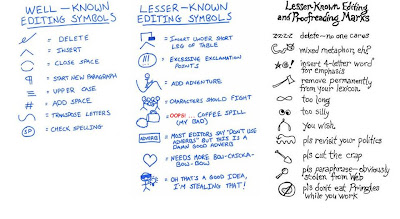 WELL-KNOWN
EDITING SYMBOLS
DELETE
INSERT
CLOSE SPACE
¶ START NEW PARAGRAPH
≡ UPPER CASE
# ADD SPACE
TRANSPOSE LETTERS
SP CHECK SPELLING
LESSER-KNOWN
EDITING SYMBOLS
INSERT UNDER SHORT
LEG OF TABLE
!!! EXCESSIVE EXCLAMATION
POINTS
ADD ADVENTURE
CHARACTERS SHOULD FIGHT
OOPS... COFFEE SPILL
(MY BAD)
ADVERB MOST EDITORS SAY "DON'T USE
ADVERBS" BUT THIS IS A
DAMN GOOD ADVERB
NEEDS MORE BOW-CHICKA-
BOW-BOW
OH THAT'S A GOOD IDEA,
I'M STEALING THAT!
Lesser-Known Editing
and Proofreading Marks
zzzz delete—no one cares
mixed metaphor, eh?
insert 4-letter word
for emphasis
remove permanently
from your lexicon
too long
too silly
you wish
pls revisit your politics
pls cut the crap
pls paraphrase—obviously
stolen from Web
pls don't eat Pringles
while you work